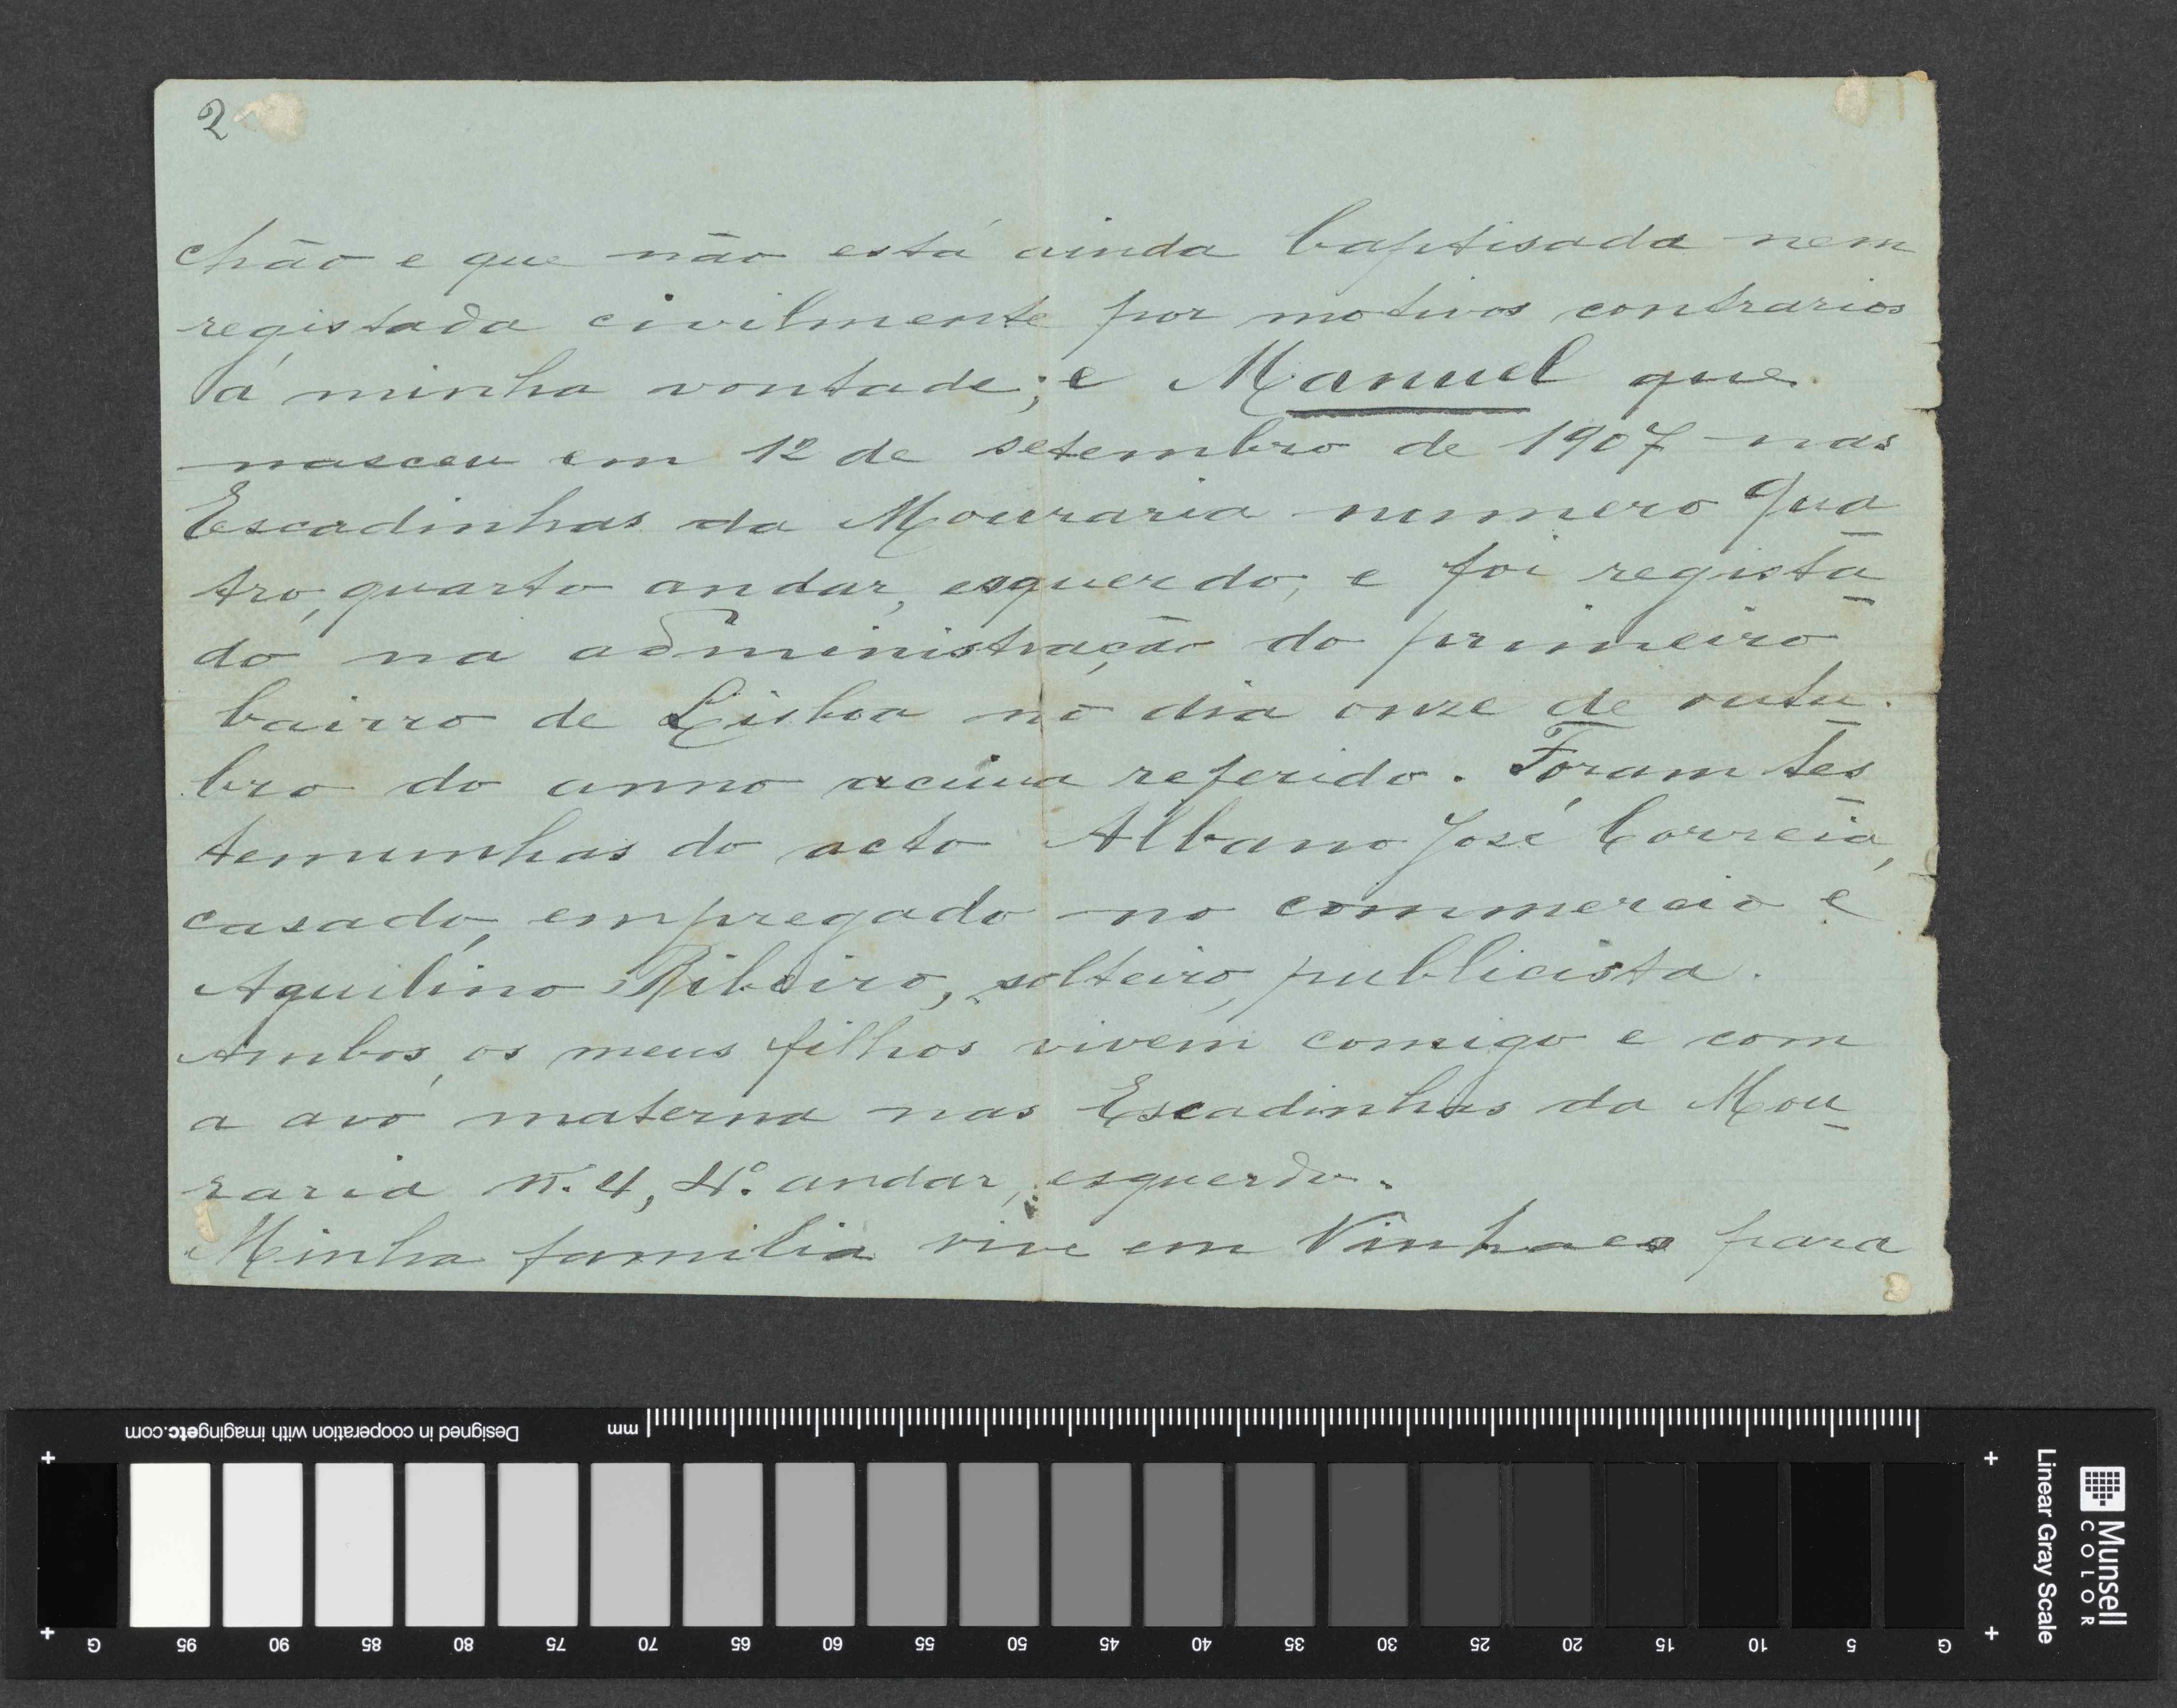 2
chão e que não está ainda baptisada nem
registada civilmente por motivos contrarios
á minha vontade; e Manuel que
nasceu em 12 de setembro de 1907 nas
Escadinhas da Mouraria numero qua-
tro, quarto andar, esquerdo, e foi regista-
do na administração do primeiro
bairro de Lisboa no dia onze de outu-
bro do anno acima referido. Foram tes-
temunhas do acto Albano José Correia,
casado, empregado no commercio e
Aquilino Ribeiro, solteiro, publicista.
Ambos os meus filhos vivem comigo e com
a avó materna nas Escadinhas da Mou-
raria n.º 4, 4.º andar, esquerdo.
Minha familia vive em Vinhaes para
Designed in cooperation with imagingetc.com
mm
G 95 90 85 80 75 70 65 60 55 50 45 40 35 30 25 20 15 10 5 G
Linear Gray Scale
Munsell
COLOR